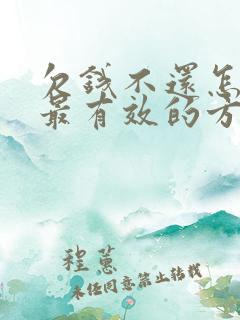 欠钱不还怎
最有效的方
程蕙
未经同意禁止转载